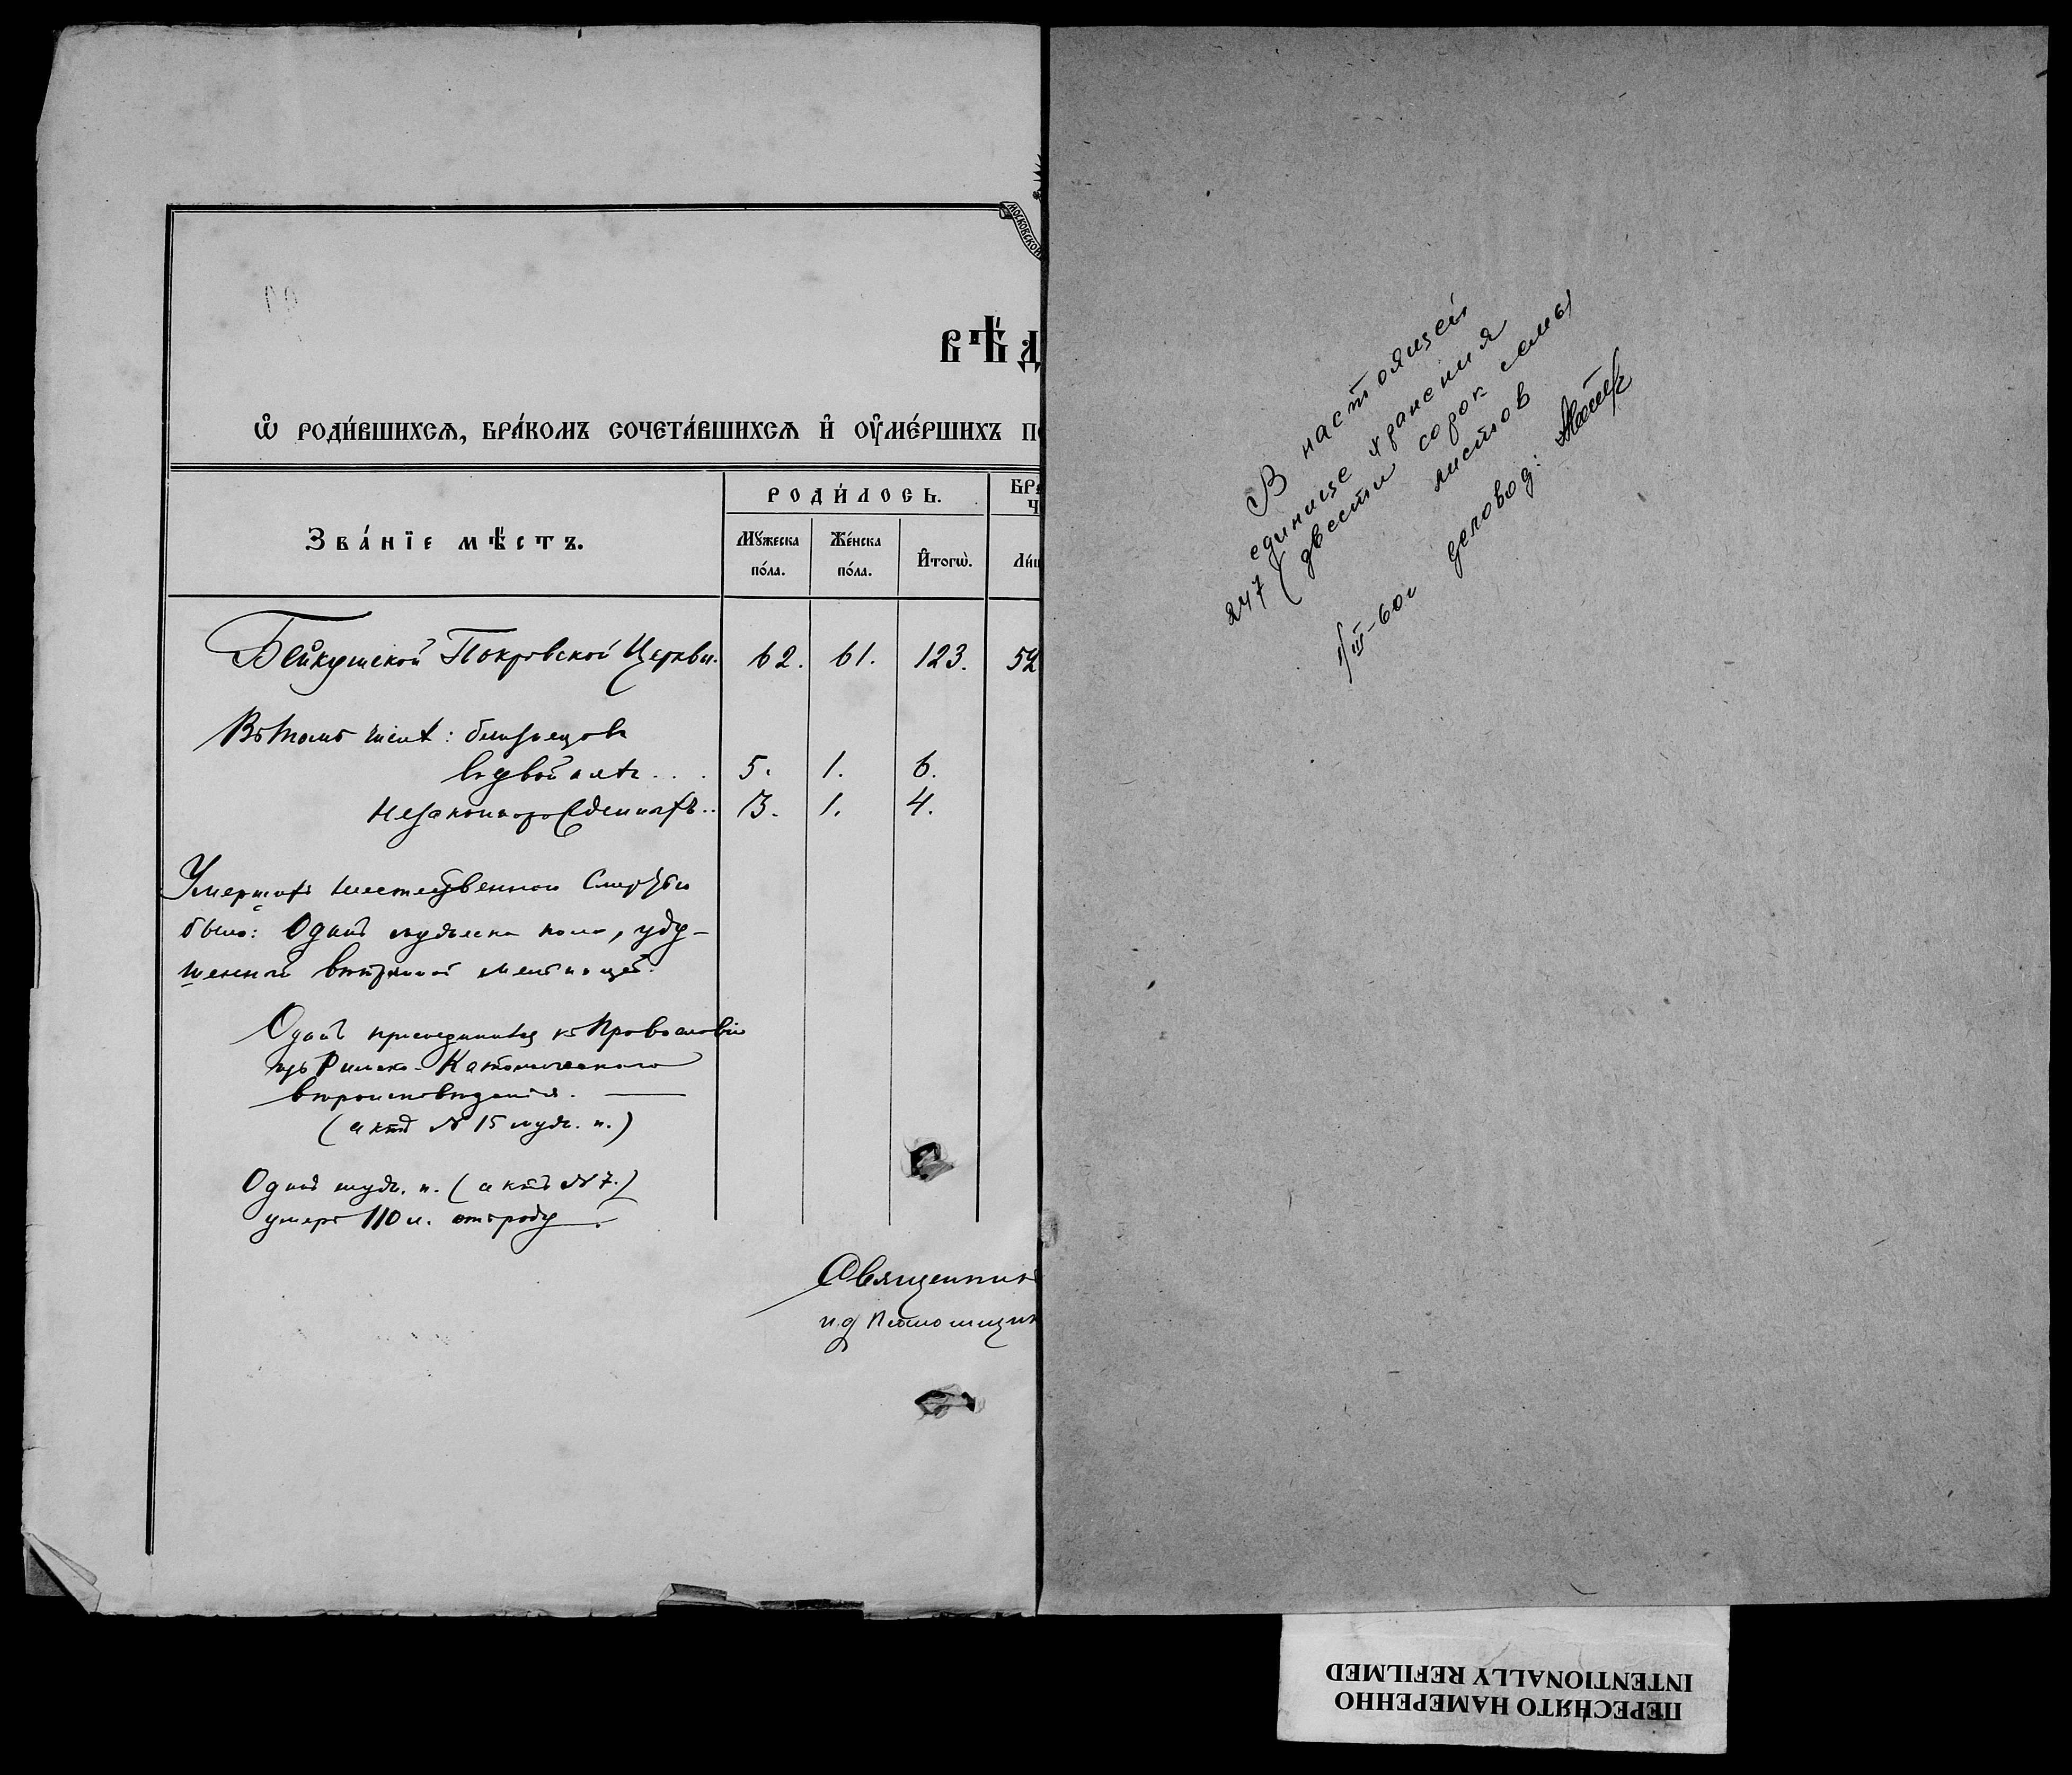 МОСКОВСКОЙ
ВѢД
Ѡ РОДИ́ВШИХСѦ, БРА́КОМЪ СОЧЕТА́ВШИХСѦ И҆ ОУ҆МЕ́РШИХЪ П
Зва́нїе мѣ́стъ.
РОДИ́ЛОСЬ.
Мꙋ́жеска по́ла.
Же́нска по́ла.
И҆тогѡ̀.
БРА
Ч
Ли
Бейкушской Покровской Церкви. 62. 61. 123. 52
Въ томъ числѣ: близнецовъ
въ двойнѣ . . . 5. 1. 6.
Незаконорожденныхъ .. 3. 1. 4.
Умершихъ неестественною смертью
было: Одинъ мужеска пола, уду-
шенный вѣтряной мельницей.
Одинъ присоединился къ Православію
изъ Римско-Католическаго
вѣроисповѣданія.
(актъ № 15 муж. п.)
Одинъ муж. п. (актъ № 7.)
умеръ 110 л. отъ роду.
Священник
и.д. Псаломщик
В настоящей
единице хранения
247 (двести сорок семь
листов
деловод:
1/III-60г
ПЕРЕСНЯТО НАМЕРЕННО
INTENTIONALLY REFILMED